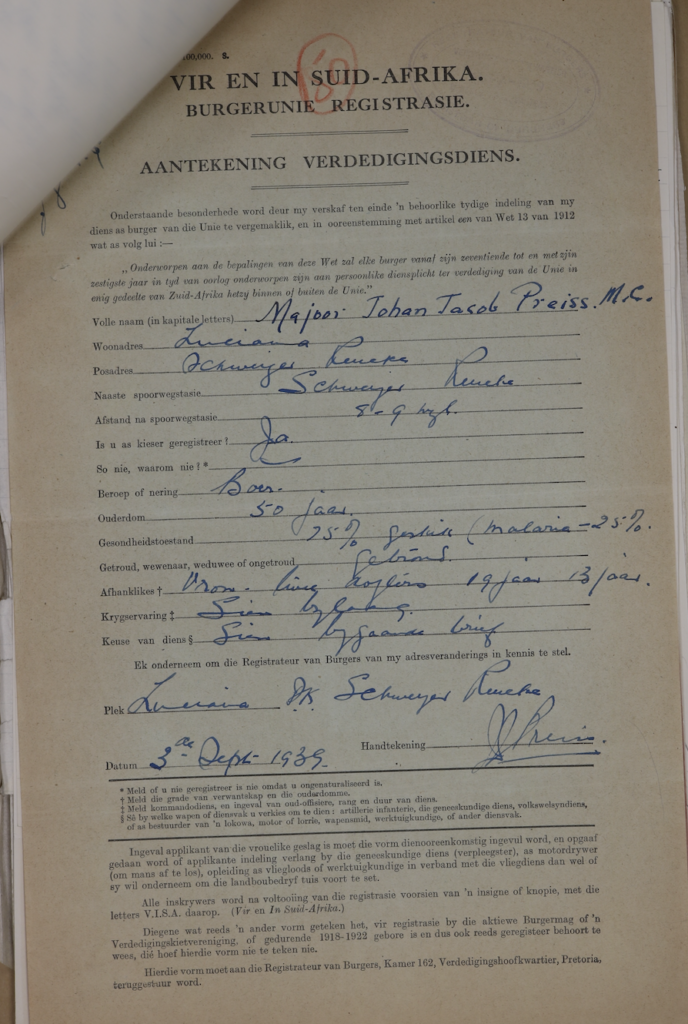 100,000. S.
VIR EN IN SUID-AFRIKA.
BURGERUNIE REGISTRASIE.
AANTEKENING VERDEDIGINGSDIENS.
Onderstaande besonderhede word deur my verskaf ten einde 'n behoorlike tydige indeling van my
diens as burger van die Unie te vergemaklik, en in ooreenstemming met artikel een van Wet 13 van 1912
wat as volg lui :—
„Onderworpen aan de bepalingen van deze Wet zal elke burger vanaf zijn zeventiende tot en met zijn
zestigste jaar in tyd van oorlog onderworpen zijn aan persoonlike diensplicht ter verdediging van de Unie in
enig gedeelte van Zuid-Afrika hetzy binnen of buiten de Unie."
Volle naam (in kapitale letters) Majoor Johan Jacob Preiss. M.C.
Woonadres Luciana
Posadres Schweizer Reneke
Naaste spoorwegstasie Schweizer Reneke
Afstand na spoorwegstasie 8-9 myl.
Is u as kieser geregistreer ? Ja.
So nie, waarom nie ? *
Beroep of nering Boer.
Ouderdom 50 jaar.
Gesondheidstoestand 75% geskik (malaria - 25%.
Getroud, wewenaar, weduwee of ongetroud getroud.
Afhanklikes † Vrou - twee dogters 19 jaar 13 jaar.
Krygservaring ‡ Sien bylaag.
Keuse van diens § Sien bygaande brief
Ek onderneem om die Registrateur van Burgers van my adresveranderings in kennis te stel.
Plek Luciana Pk Schweizer Reneke
Datum 3de Sept. 1939. Handtekening JJPreiss.
* Meld of u nie geregistreer is nie omdat u ongenaturaliseerd is.
† Meld die grade van verwantskap en die ouderdomme.
‡ Meld kommandodiens, en ingeval van oud-offisiere, rang en duur van diens.
§ Sê by welke wapen of diensvak u verkies om te dien : artillerie infanterie, die geneeskundige diens, volkswelsyndiens,
of as bestuurder van 'n lokowa, motor of lorrie, wapensmid, werktuigkundige, of ander diensvak.
Ingeval applikant van die vrouelike geslag is moet die vorm dienooreenkomstig ingevul word, en opgaaf
gedaan word of applikante indeling verlang by die geneeskundige diens (verpleegster), as motordrywer
(om mans af te los), opleiding as vliegloods of werktuigkundige in verband met die vliegdiens dan wel of
sy wil onderneem om die landboubedryf tuis voort te set.
Alle inskrywers word na voltooiing van die registrasie voorsien van 'n insigne of knopie, met die
letters V.I.S.A. daarop. (Vir en In Suid-Afrika.)
Diegene wat reeds 'n ander vorm geteken het, vir registrasie by die aktiewe Burgermag of 'n
Verdedigingskietvereniging, of gedurende 1918-1922 gebore is en dus ook reeds geregisteer behoort te
wees, dié hoef hierdie vorm nie te teken nie.
Hierdie vorm moet aan die Registrateur van Burgers, Kamer 162, Verdedigingshoofkwartier, Pretoria,
teruggestuur word.